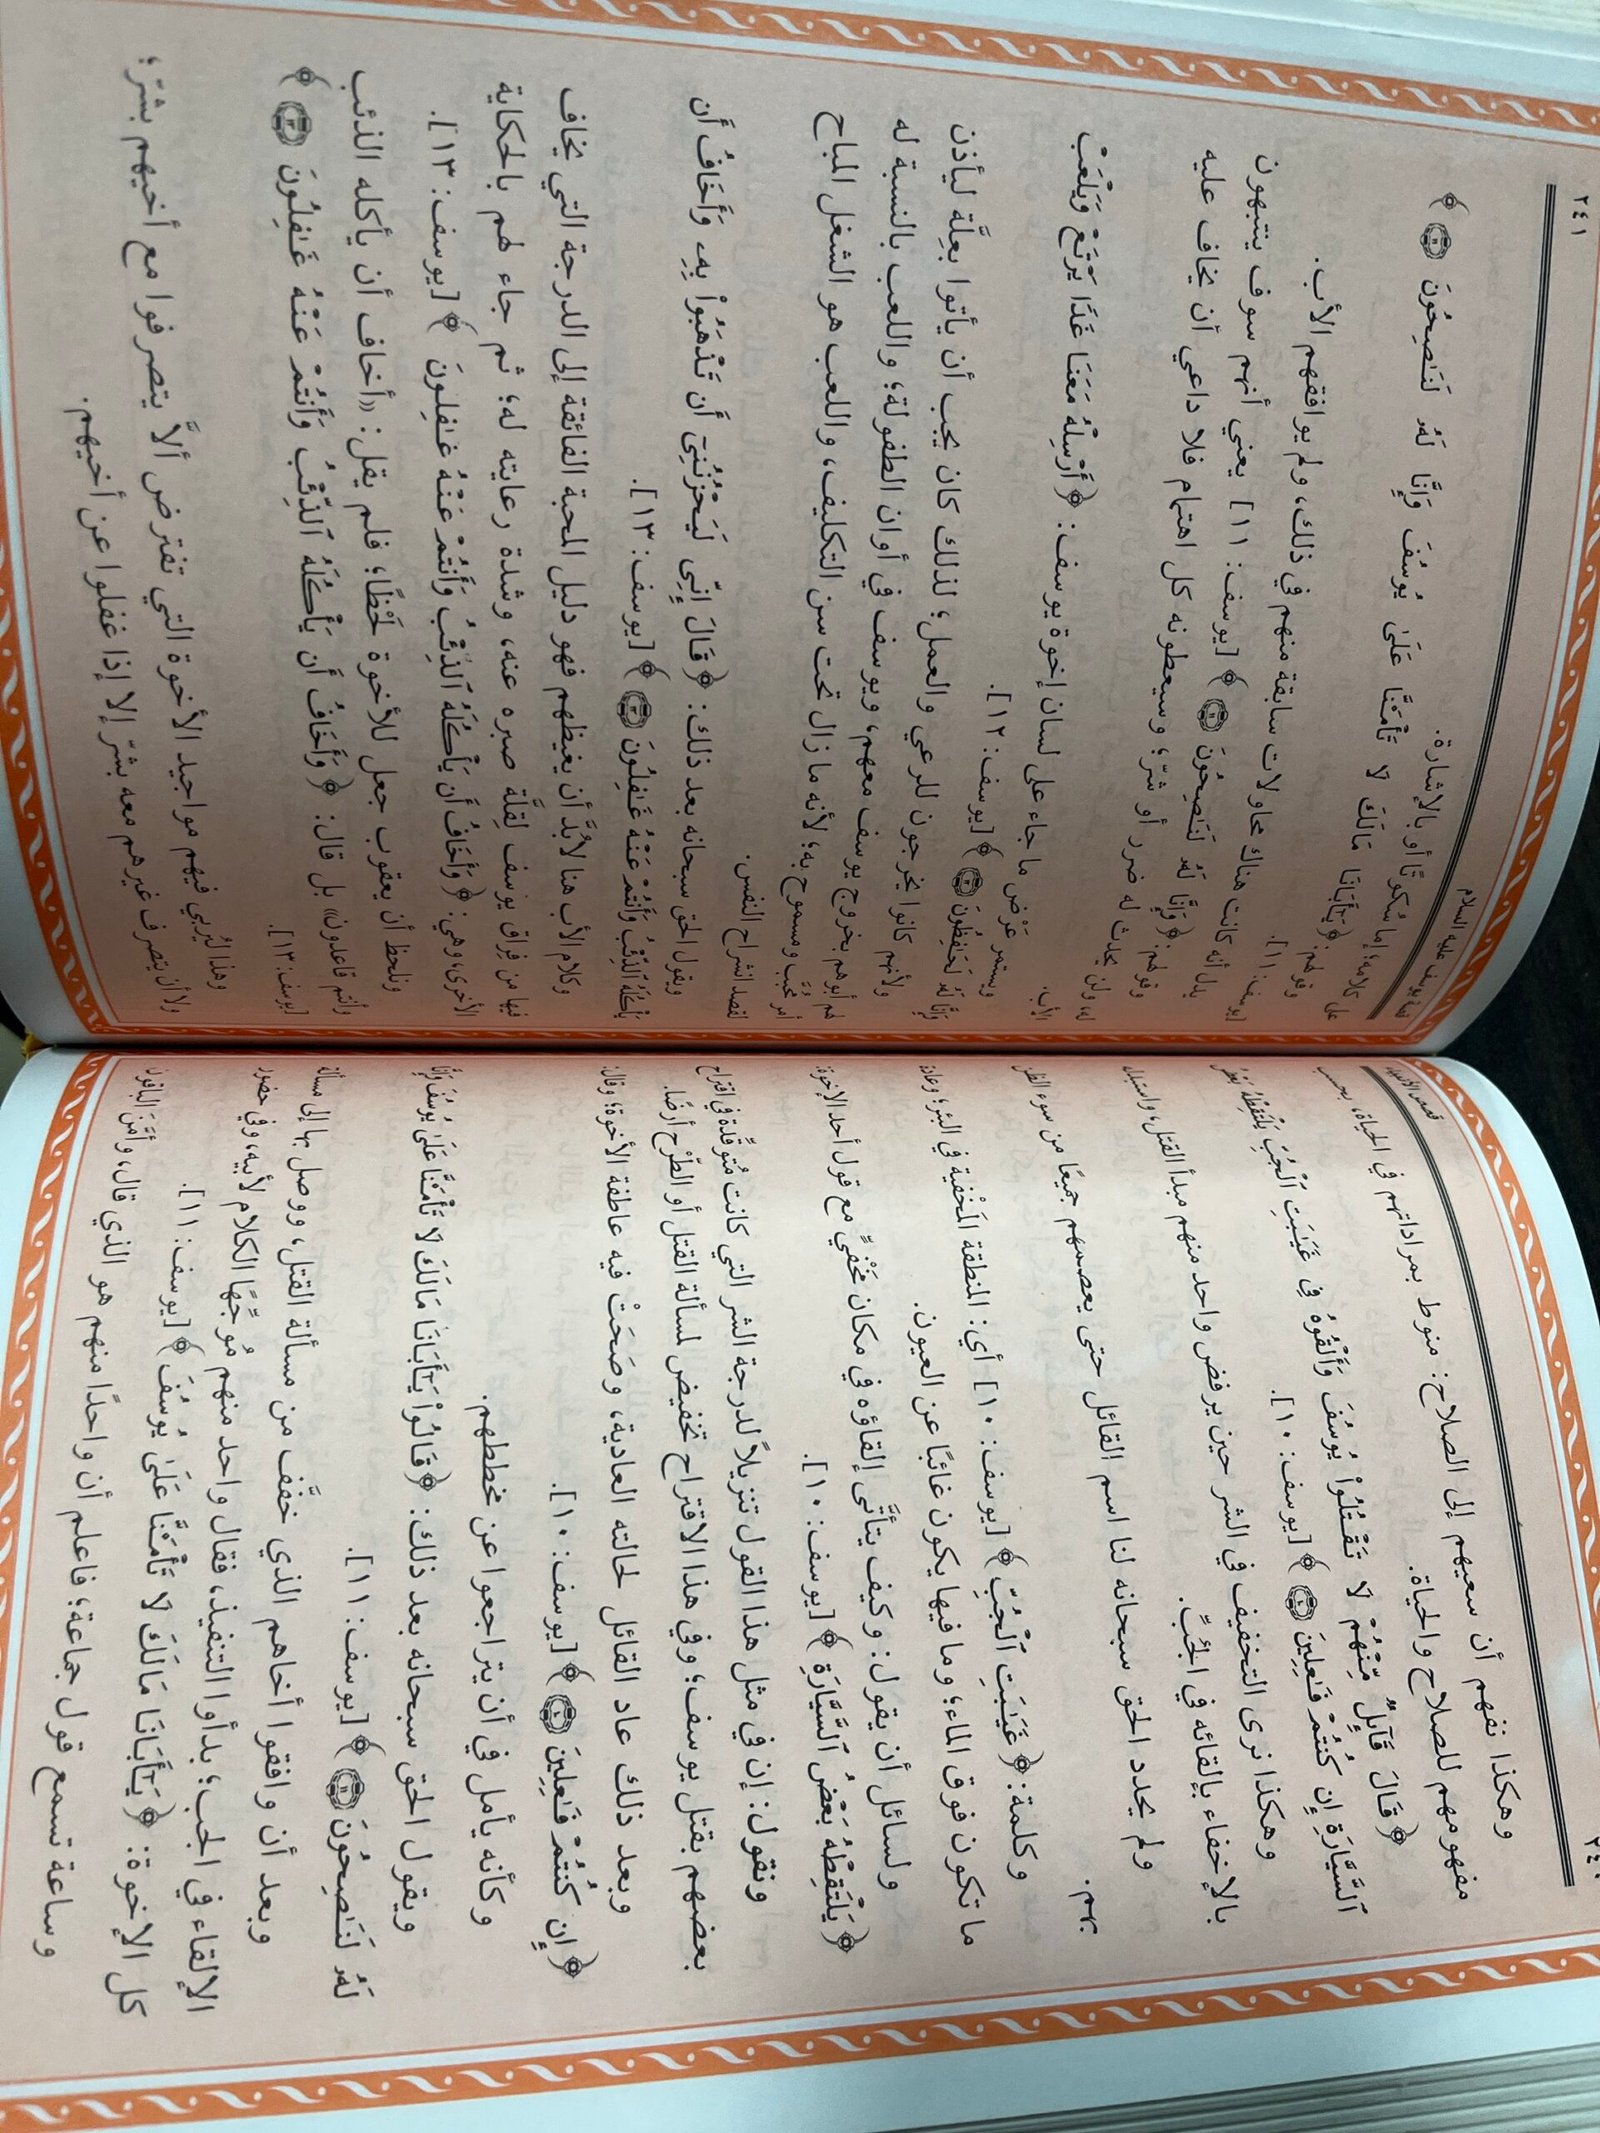 قصص الأنبياء ٢٤٠
وهكذا نفهم أن سعيهم إلى الصلاح: منوط بمراداتهم في الحياة، بحسب
مفهومهم للصلاح والحياة.
﴿ قَالَ قَآئِلٌ مِّنْهُمْ لَا تَقْتُلُوا۟ يُوسُفَ وَأَلْقُوهُ فِى غَيَٰبَتِ ٱلْجُبِّ يَلْتَقِطْهُ بَعْضُ
ٱلسَّيَّارَةِ إِن كُنتُمْ فَٰعِلِينَ ١٠ ﴾ [يوسف: ١٠].
وهكذا نرى التخفيف في الشر حين يرفض واحد منهم مبدأ القتل، واستبدله
بالإخفاء بإلقائه في الجُبِّ.
ولم يحدد الحق سبحانه لنا اسم القائل حتى يعصمهم جميعًا من سوء الظن
بهم.
وكلمة: ﴿ غَيَٰبَتِ ٱلْجُبِّ ﴾ [يوسف: ١٠] أي: المنطقة المَخْفية في البئر؛ وعادة
ما تكون فوق الماء؛ وما فيها يكون غائبًا عن العيون.
ولسائل أن يقول: وكيف يتأتَّى إلقاؤه في مكان مَخْفيٍّ مع قول أحد الإخوة:
﴿ يَلْتَقِطْهُ بَعْضُ ٱلسَّيَّارَةِ ﴾ [يوسف: ١٠].
ونقول: إن في مثل هذا القول تنزيلاً لدرجة الشر التي كانت مُتوقِّدة في اقتراح
بعضهم بقتل يوسف؛ وفي هذا الاقتراح تخفيض لمسألة القتل أو الطَّرْح أرضًا.
وبعد ذلك عاد القائل لحالته العادية، وصَحَتْ فيه عاطفة الأخوة؛ وقال:
﴿ إِن كُنتُمْ فَٰعِلِينَ ١٠ ﴾ [يوسف: ١٠].
وكأنه يأمل في أن يتراجعوا عن مخططهم.
ويقول الحق سبحانه بعد ذلك: ﴿ قَالُوا۟ يَٰٓأَبَانَا مَا لَكَ لَا تَأْمَ۫نَّا عَلَىٰ يُوسُفَ وَإِنَّا
لَهُۥ لَنَٰصِحُونَ ١١ ﴾ [يوسف: ١١].
وبعد أن وافقوا أخاهم الذي خفَّف من مسألة القتل، ووصل بها إلى مسألة
الإلقاء في الجب؛ بدأوا التنفيذ، فقال واحد منهم مُوجِّهًا الكلام لأبيه، وفي حضور
كل الإخوة: ﴿ يَٰٓأَبَانَا مَا لَكَ لَا تَأْمَ۫نَّا عَلَىٰ يُوسُفَ ﴾ [يوسف: ١١].
وساعة تسمع قول جماعة؛ فاعلم أن واحدًا منهم هو الذي قال، وأمَّنَ الباقون
قصة يوسف عليه السلام ٢٤١
على كلامه؛ إما سُكوتًا أو بالإشارة.
وقولهم: ﴿ يَٰٓأَبَانَا مَا لَكَ لَا تَأْمَ۫نَّا عَلَىٰ يُوسُفَ وَإِنَّا لَهُۥ لَنَٰصِحُونَ ١١ ﴾
[يوسف: ١١].
يدل أنه كانت هناك محاولات سابقة منهم في ذلك، ولم يوافقهم الأب.
وقولهم: ﴿ وَإِنَّا لَهُۥ لَنَٰصِحُونَ ١١ ﴾ [يوسف: ١١] يعني أنهم سوف ينتبهون
له، ولن يحدث له ضرر أو شرّ؛ وسيعطونه كل اهتمام فلا داعي أن يخاف عليه
الأب.
ويستمر عَرْض ما جاء على لسان إخوة يوسف: ﴿ أَرْسِلْهُ مَعَنَا غَدًا يَرْتَعْ وَيَلْعَبْ
وَإِنَّا لَهُۥ لَحَٰفِظُونَ ١٢ ﴾ [يوسف: ١٢].
ولأنهم كانوا يخرجون للرعي والعمل؛ لذلك كان يجب أن يأتوا بعِلَّة ليأذن
لهم أبوهم بخروج يوسف معهم، ويوسف في أوان الطفولة؛ واللعب بالنسبة له
أمر مُحبَّب ومسموح به؛ لأنه ما زال تحت سن التكليف، واللعب هو الشغل المباح
لقصد انشراح النفس.
ويقول الحق سبحانه بعد ذلك: ﴿ قَالَ إِنِّى لَيَحْزُنُنِىٓ أَن تَذْهَبُوا۟ بِهِۦ وَأَخَافُ أَن
يَأْكُلَهُ ٱلذِّئْبُ وَأَنتُمْ عَنْهُ غَٰفِلُونَ ١٣ ﴾ [يوسف: ١٣].
وكلام الأب هنا لابُدَّ أن يغيظهم فهو دليل المحبة الفائقة إلى الدرجة التي يخاف
فيها من فِراق يوسف لِقلَّة صبره عنه، وشدة رعايته له؛ ثم جاء لهم بالحكاية
الأخرى، وهي: ﴿ وَأَخَافُ أَن يَأْكُلَهُ ٱلذِّئْبُ وَأَنتُمْ عَنْهُ غَٰفِلُونَ ﴾ [يوسف: ١٣].
ونلحظ أن يعقوب جعل للأخوة حَظًّا؛ فلم يقل: «أخاف أن يأكله الذئب
وأنتم قاعدون» بل قال: ﴿ وَأَخَافُ أَن يَأْكُلَهُ ٱلذِّئْبُ وَأَنتُمْ عَنْهُ غَٰفِلُونَ ١٣ ﴾
[يوسف: ١٣].
وهذا ليُربي فيهم مواجيد الأخوة التي تفترض ألاَّ يتصرفوا مع أخيهم بشرّ؛
ولا أن يتصرف غيرهم معه بشرّ إلا إذا غفلوا عن أخيهم.